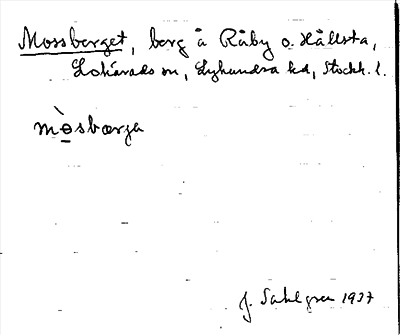 Mossberget, berg å Råby o. Hållsta,
Lohärads sn, Lyhundra hd, Stockh. l.
mò̱sbærga
J. Sahlgren 1937